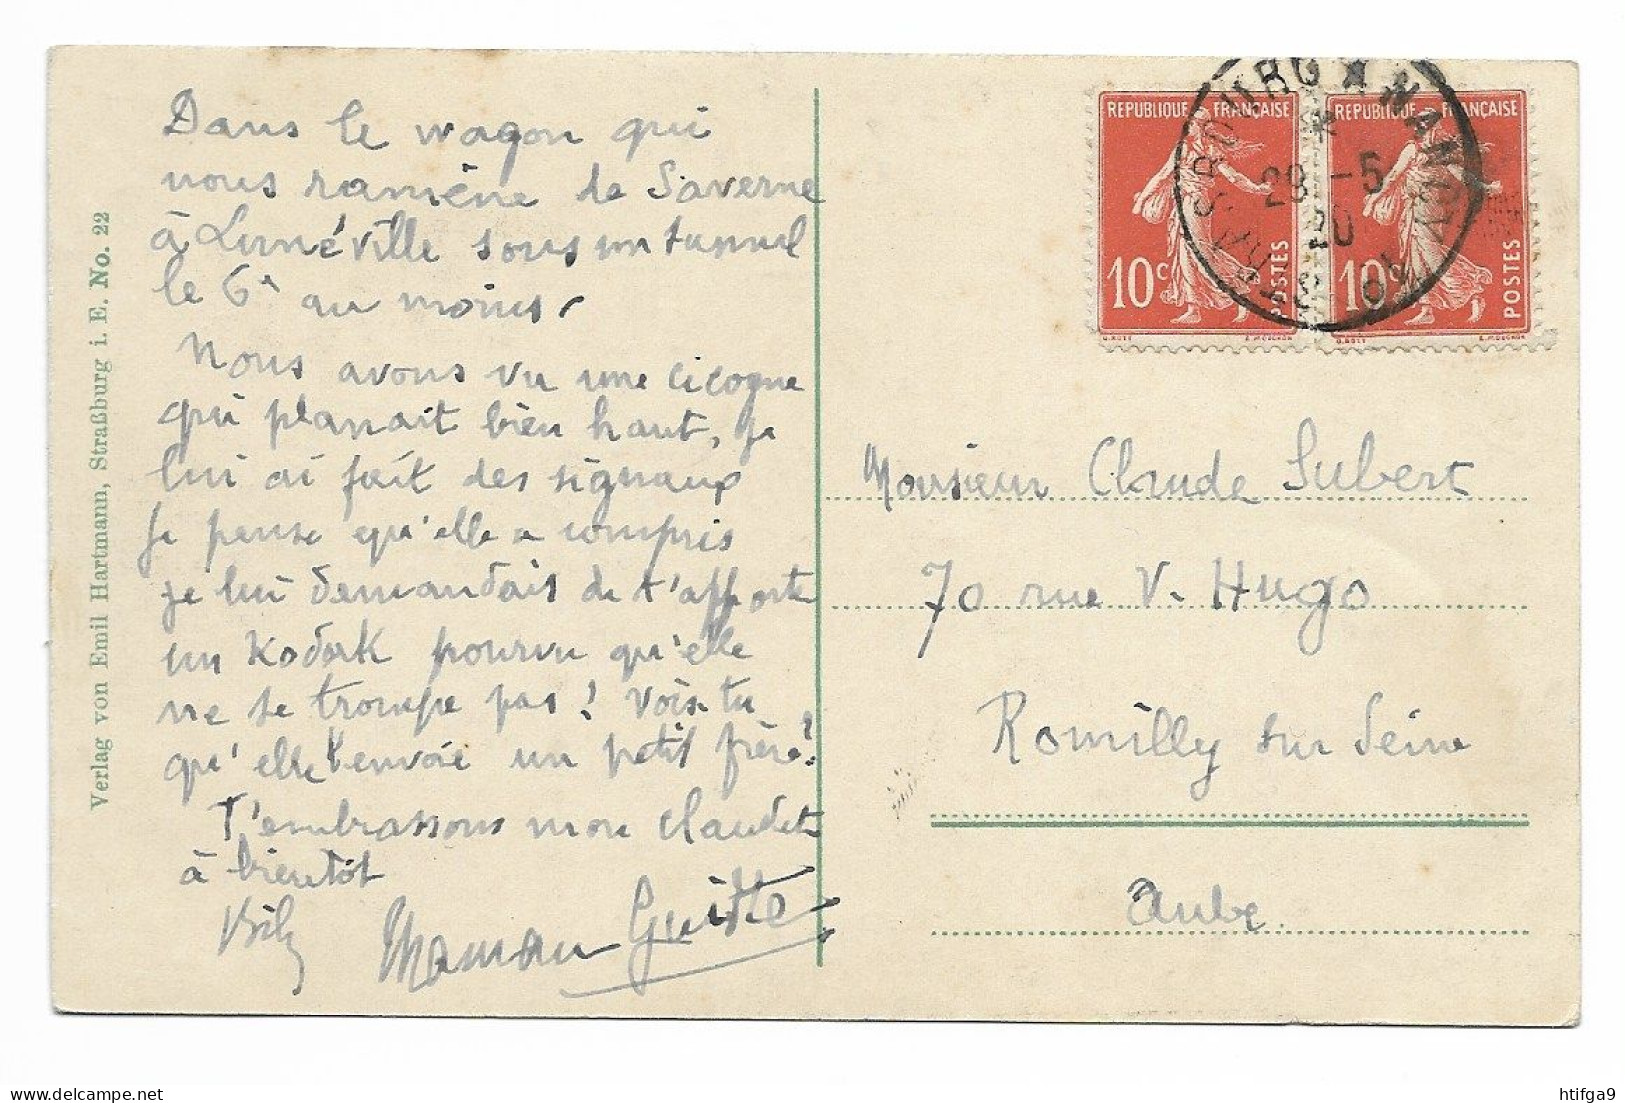 Verlag von Emil Hartmann, Straßburg i. E. No. 22
Dans le wagon qui
nous ramène de Saverne
à Lunéville sous un tunnel
le 6e au moins.
Nous avons vu une cicogne
qui planait bien haut, je
lui ai fait des signaux
je pense qu'elle a compris
je lui demandais de t'apporter
un Kodak pourvu qu'elle
ne se trompe pas! Vois-tu
qu'elle t'envoie un petit frère!
T'embrassons mon Claudet
à bientôt
Maman Guitte
REPUBLIQUE FRANÇAISE
10c POSTES
REPUBLIQUE FRANÇAISE
10c POSTES
28 -5
20
Monsieur Claude Subert
70 rue V. Hugo
Romilly sur Seine
Aube
htifga9